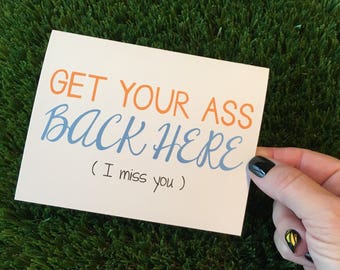 GET YOUR ASS
BACK HERE
( I miss you )